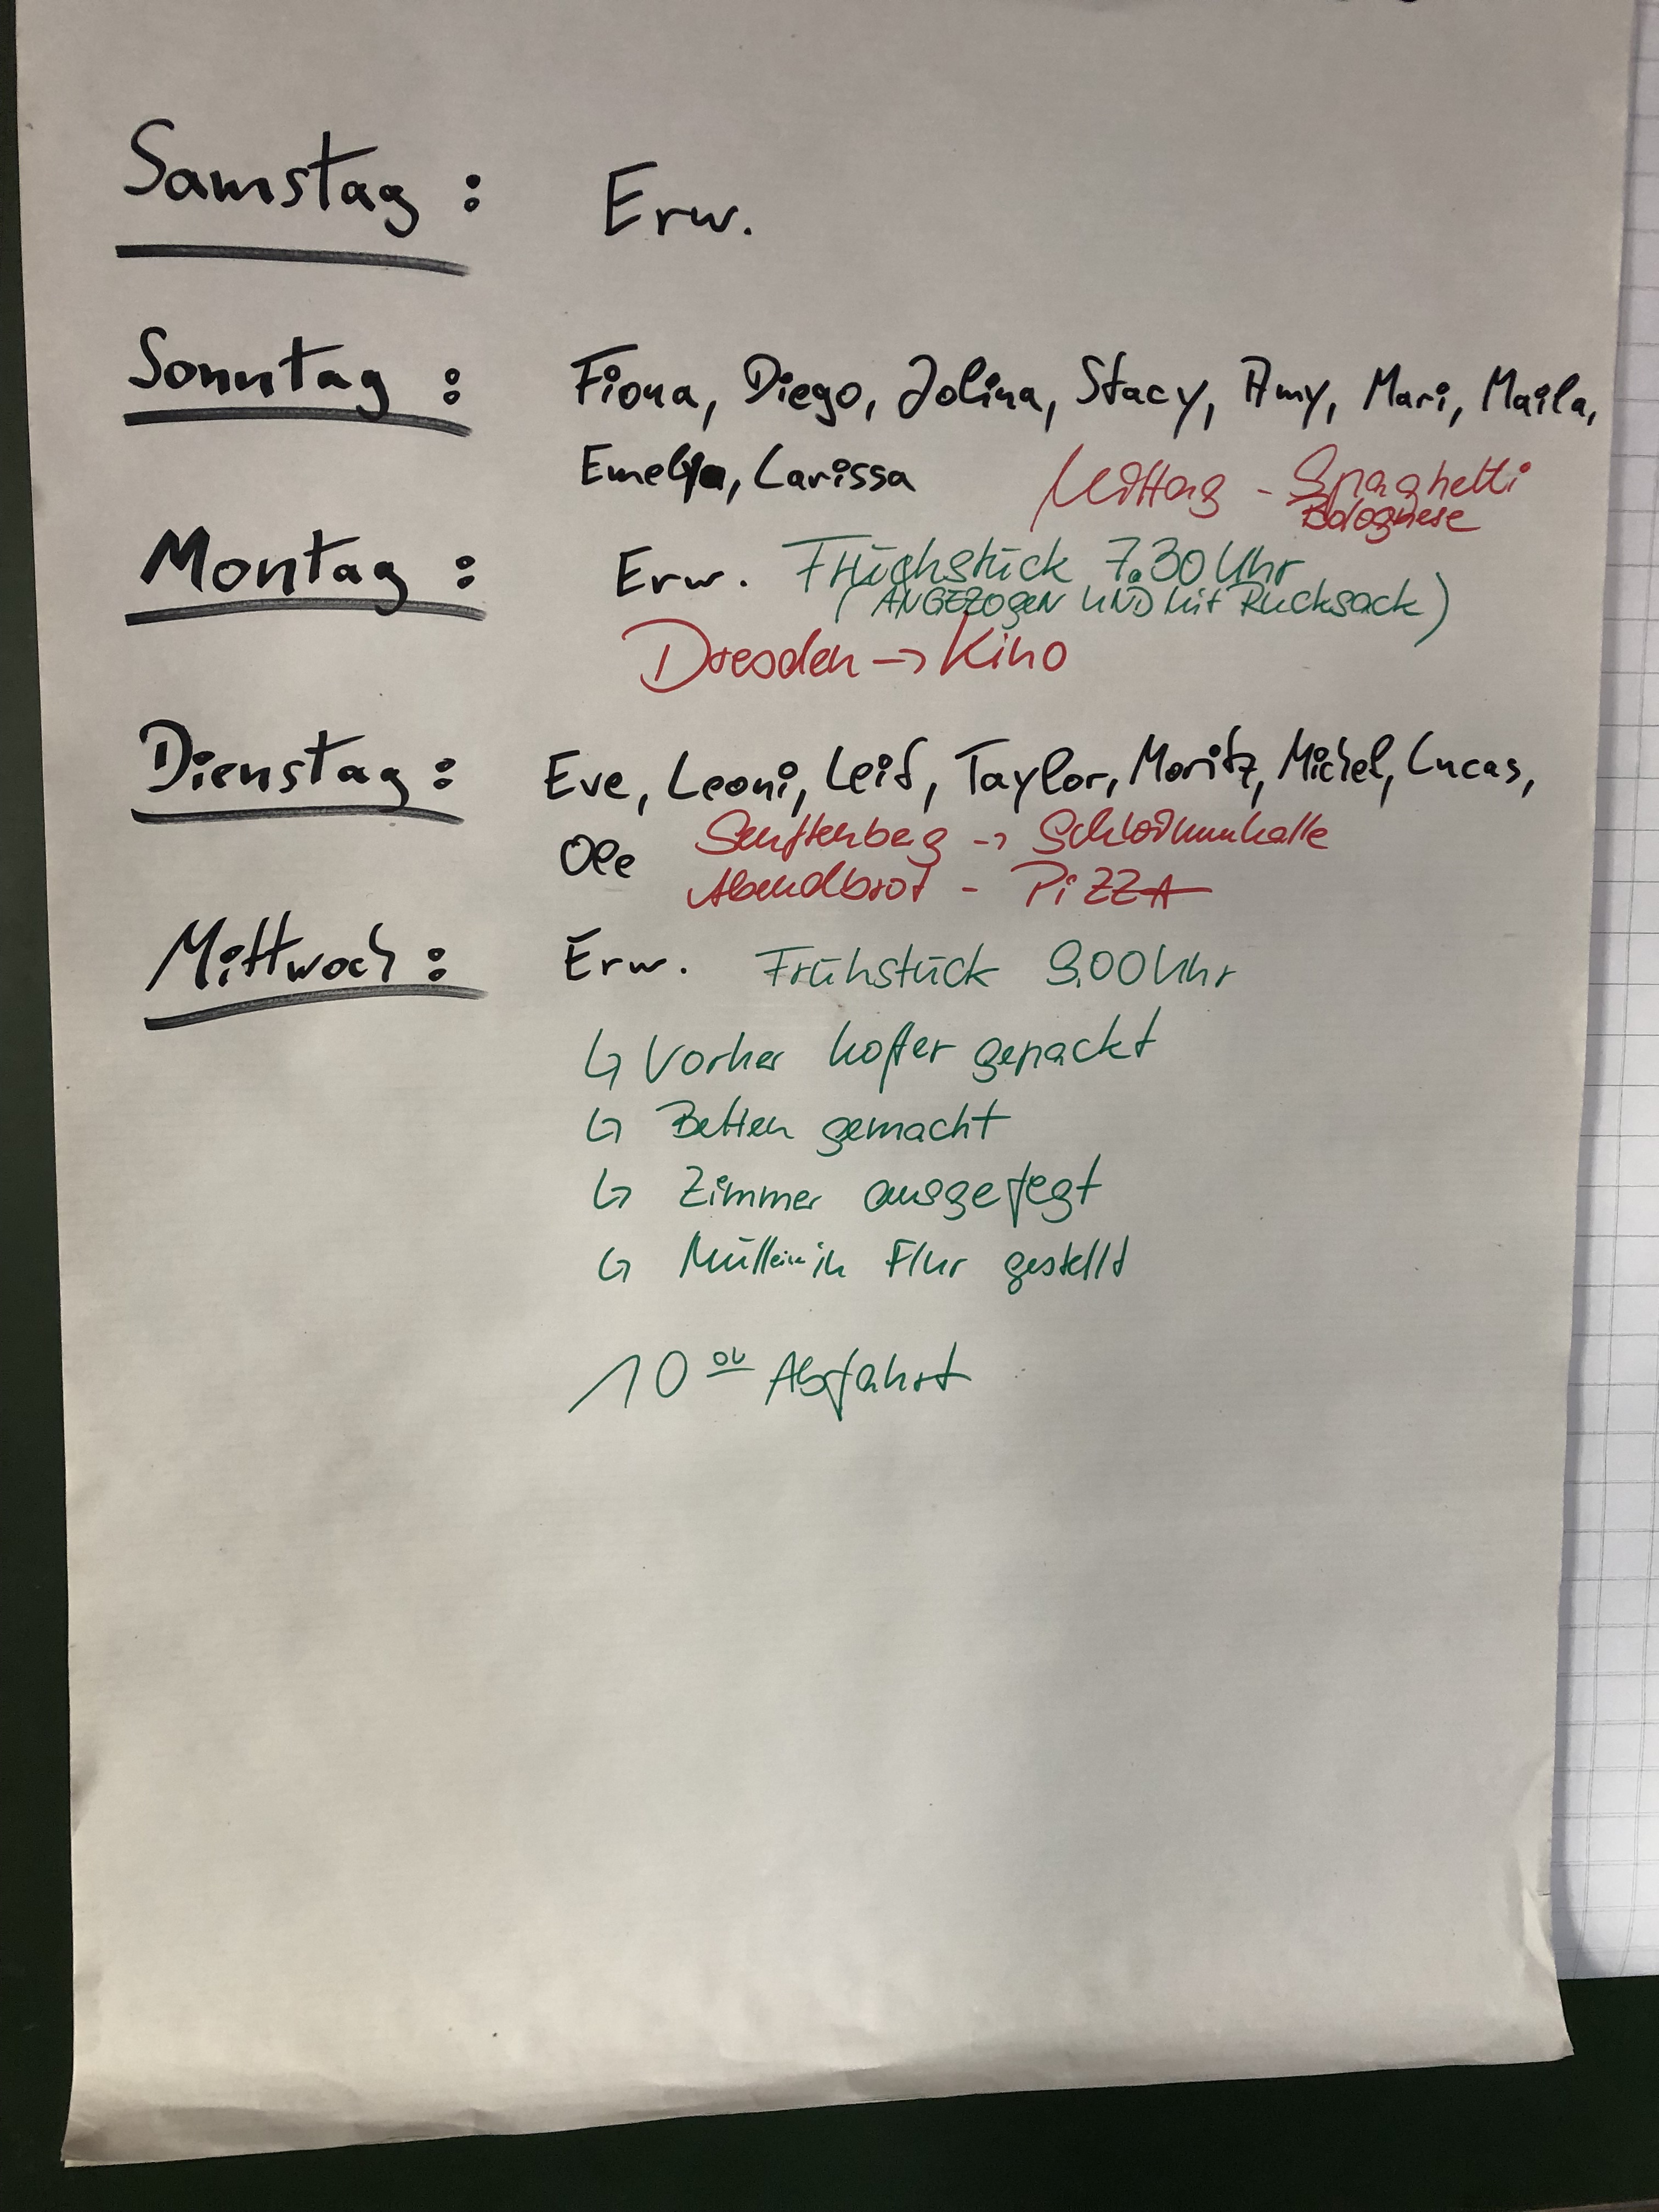 Samstag: Erw.
Sonntag: Fiona, Diego, Jolina, Stacy, Amy, Mari, Maila,
Emelya, Larissa Mittag - Spaghetti
Bolognese
Montag: Erw. Frühstück 7.30 Uhr
(ANGEZOGEN UND mit Rucksack)
Dresden → Kino
Dienstag: Eve, Leoni, Leif, Taylor, Moritz, Michel, Lucas,
Ole Senftenberg → Schwimmhalle
Abendbrot - PiZZA
Mittwoch: Erw. Frühstück 9.00 Uhr
↳ Vorher Koffer gepackt
↳ Betten gemacht
↳ Zimmer ausgefegt
↳ in Flur gestellt
10 00 Abfahrt